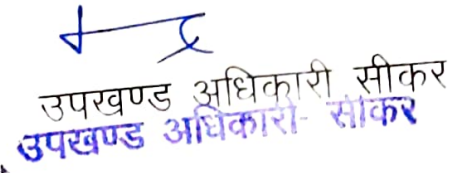 उपखण्ड अधिकारी सीकर
उपखण्ड अधिकारी- सीकर